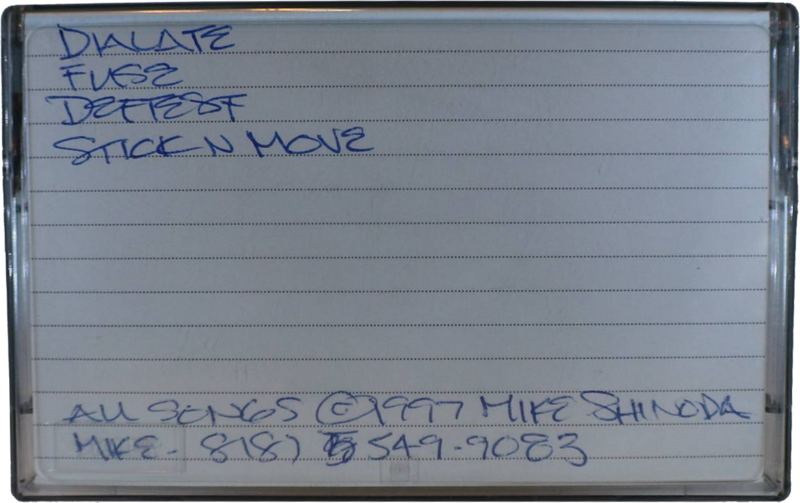 DIALATE
FUSE
DEFTEST
STICK N MOVE
ALL SONGS ©1997 MIKE SHINODA
MIKE - 818) 549-9083